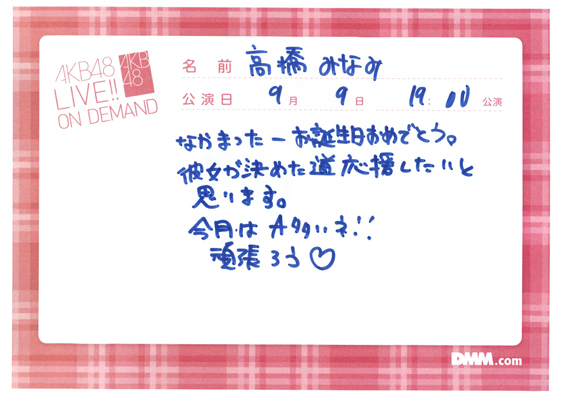 AKB48
LIVE!!
ON DEMAND
AKB
48
名 前 高橋みなみ
公演日 9月 9日 19:00 公演
なかまったーお誕生日おめでとう。
彼女が決めた道応援したいと
思います。
今月は A多いネ!!
頑張ろう♡
DMM.com